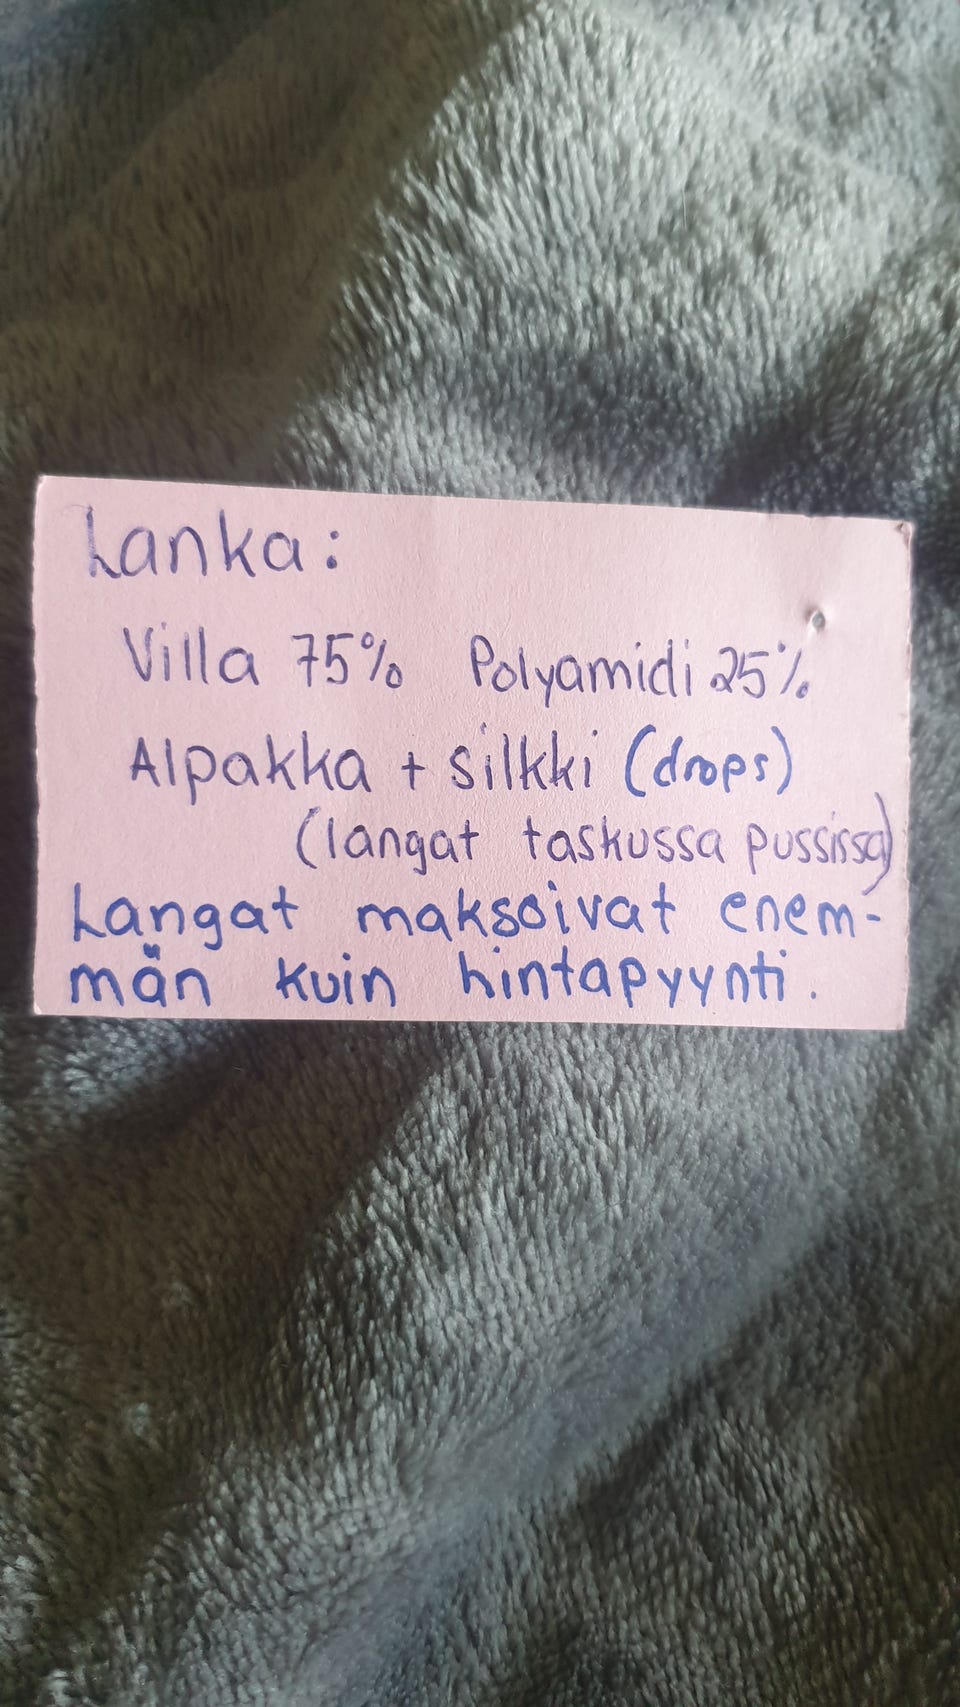 Lanka:
Villa 75% Polyamidi 25%
Alpakka + silkki (drops)
(langat taskussa pussissa)
Langat maksoivat enem-
män kuin hintapyynti.